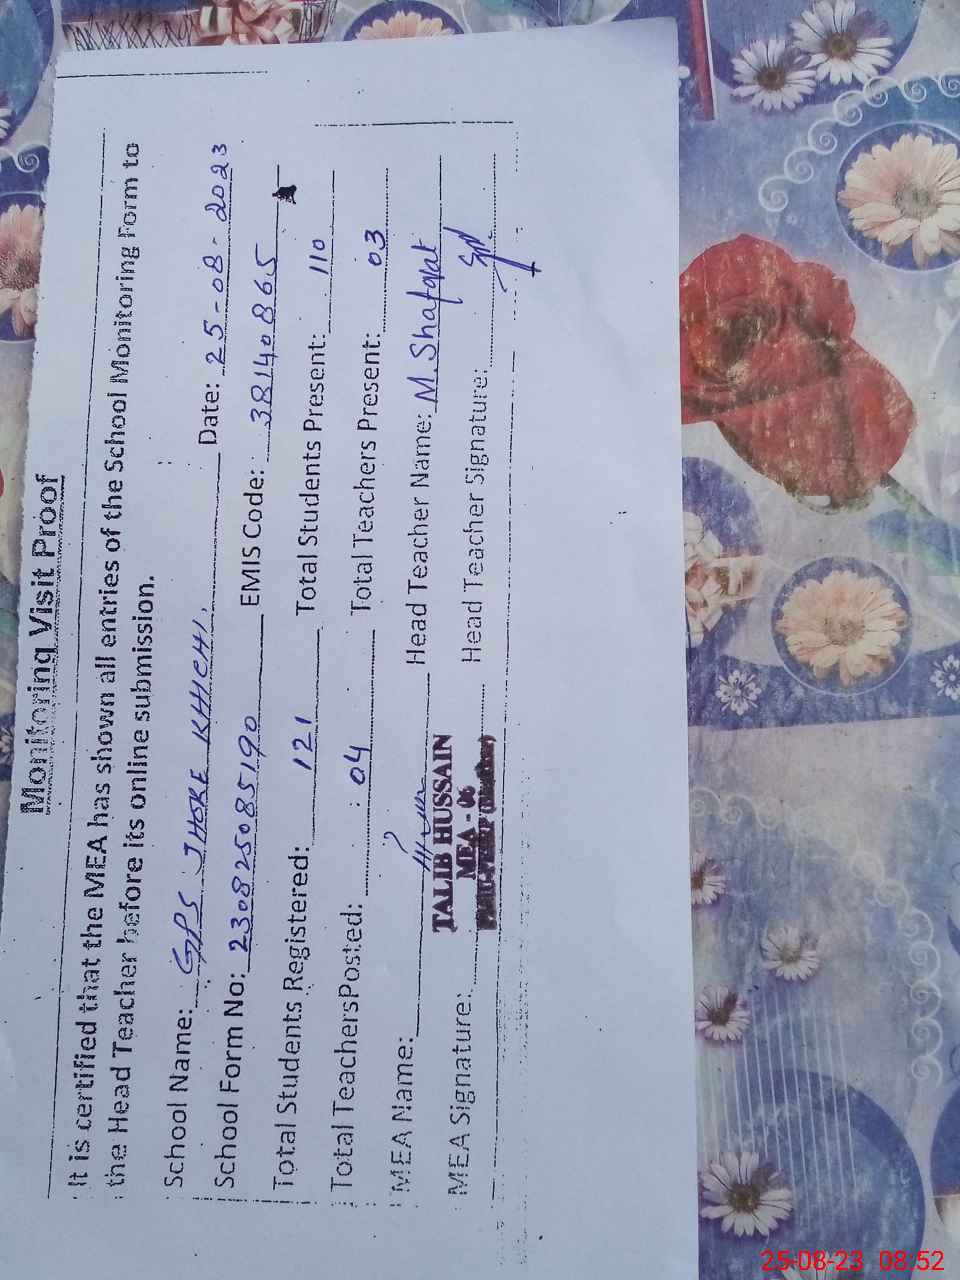 Monitoring Visit Proof
It is certified that the MEA has shown all entries of the School Monitoring Form to
the Head Teacher before its online submission.
School Name: GPS JHOKE KHICHI. Date: 25-08-2023
School Form No: 230825085190 EMIS Code: 38140865
Total Students Registered: 121 Total Students Present: 110
Total TeachersPosted: 04 Total Teachers Present: 03
MEA Name: Head Teacher Name: M.Shafqat
TALIB HUSSAIN
MEA - 06
MEA Signature: Head Teacher Signature:
25-08-23 08:52